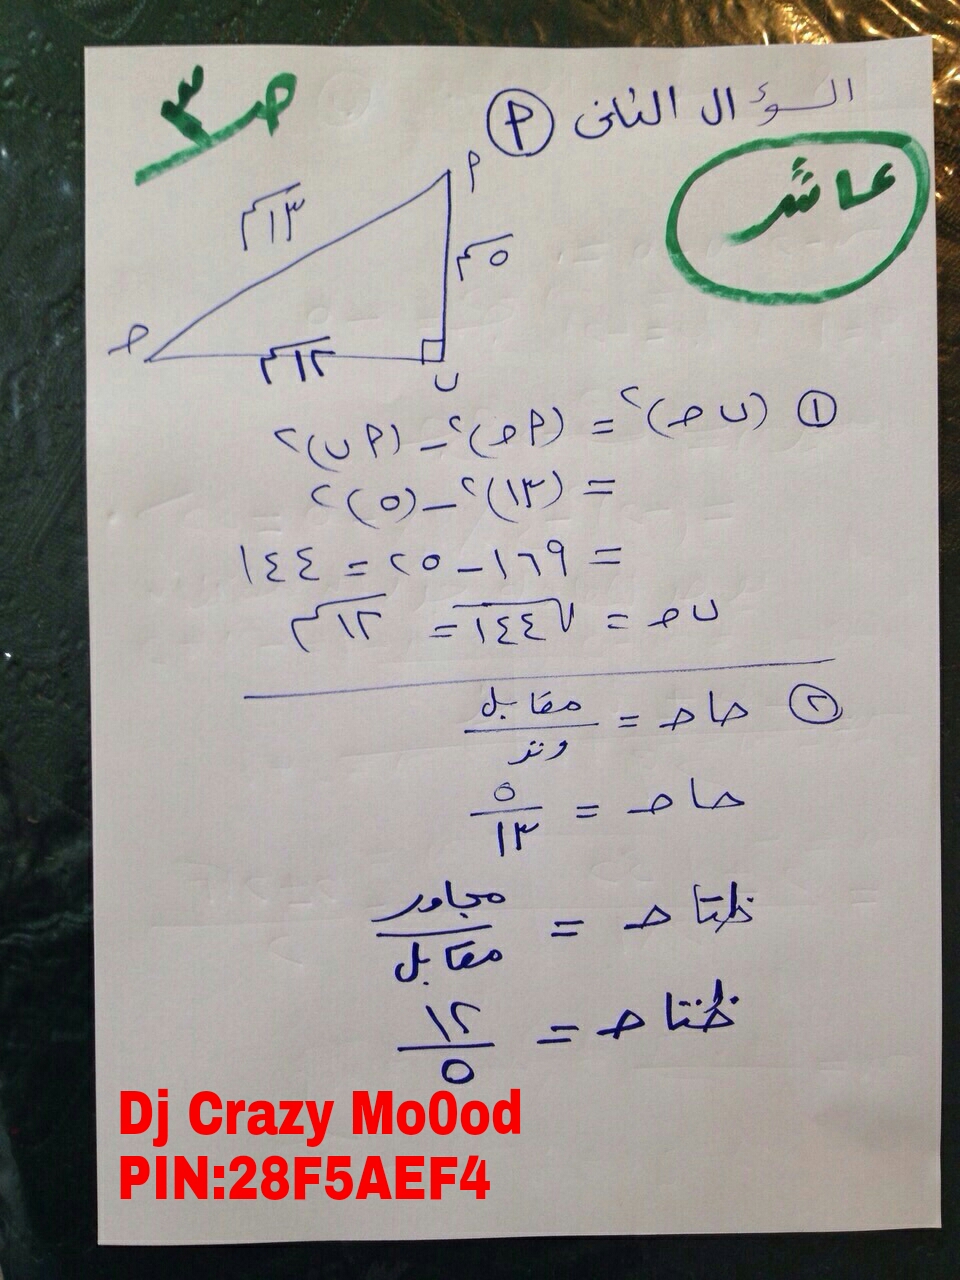 السؤال الثانى (م)
ص٣
عاشر
م
١٣سم
٥سم
ح
١٢سم
ب
① (ب ح)٢ = (م ح)٢ – (م ب)٢
= (١٣)٢ – (٥)٢
= ١٦٩ – ٢٥ = ١٤٤
ب ح = √١٤٤ = ١٢سم
② حا ح = مقابل / وتر
حا ح = ٥ / ١٣
ظتا ح = مجاور / مقابل
ظتا ح = ١٢ / ٥
Dj Crazy Mo0od
PIN:28F5AEF4